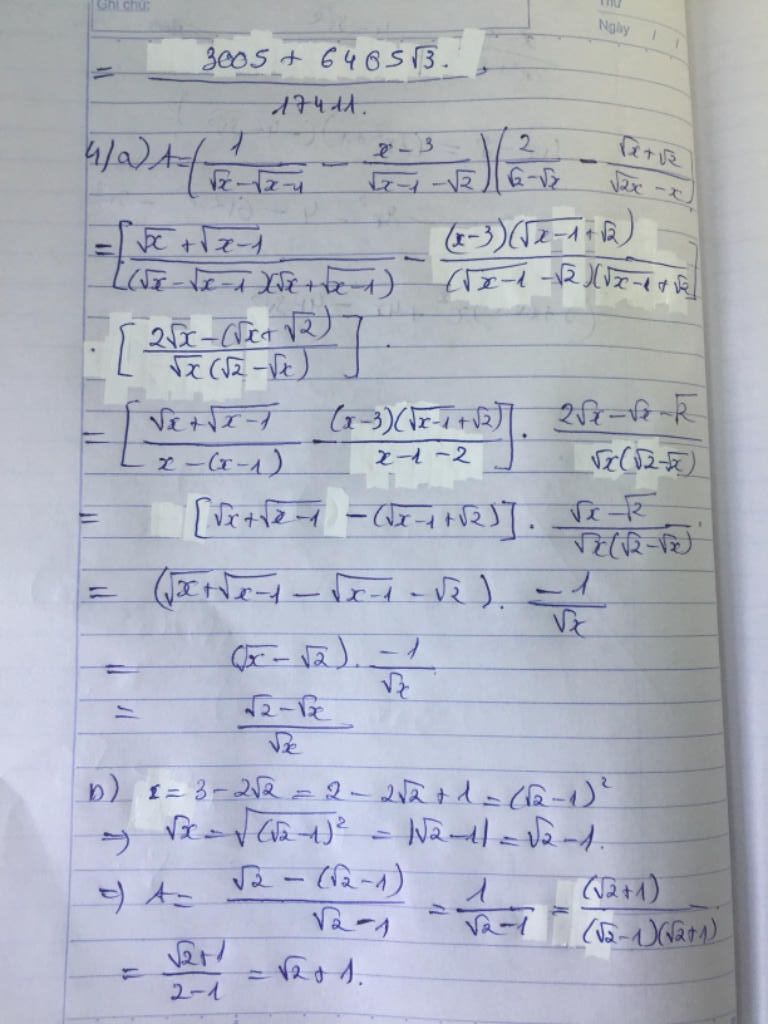 Ghi chú:
Thứ
Ngày / /
= (3005 + 6465√3.)/17411.
4/a) A=(1/(√x-√x-1) - (x-3)/(√x-1 -√2))(2/(√2-√x) - (√x+√2)/(√2x -x))
=[(√x +√x-1)/((√x-√x-1)(√x+√x-1)) - ((x-3)(√x-1+√2))/((√x-1 -√2)(√x-1+√2))]
. [(2√x-(√x+√2))/(√x(√2-√x))] .
= [(√x+√x-1)/(x-(x-1)) - ((x-3)(√x-1+√2))/(x-1-2)] . (2√x-√x-√2)/(√x(√2-√x))
= [√x+√x-1 -(√x-1+√2)] . (√x-√2)/(√x(√2-√x)).
= (√x+√x-1 -√x-1 -√2) . -1/√x
= (√x-√2) . -1/√x
= (√2-√x)/√x
b) x= 3-2√2 = 2-2√2+1 = (√2-1)²
=> √x = √(√2-1)² = |√2-1| = √2-1.
=> A= (√2-(√2-1))/(√2-1) = 1/(√2-1) = (√2+1)/((√2-1)(√2+1))
= (√2+1)/(2-1) = √2+1.